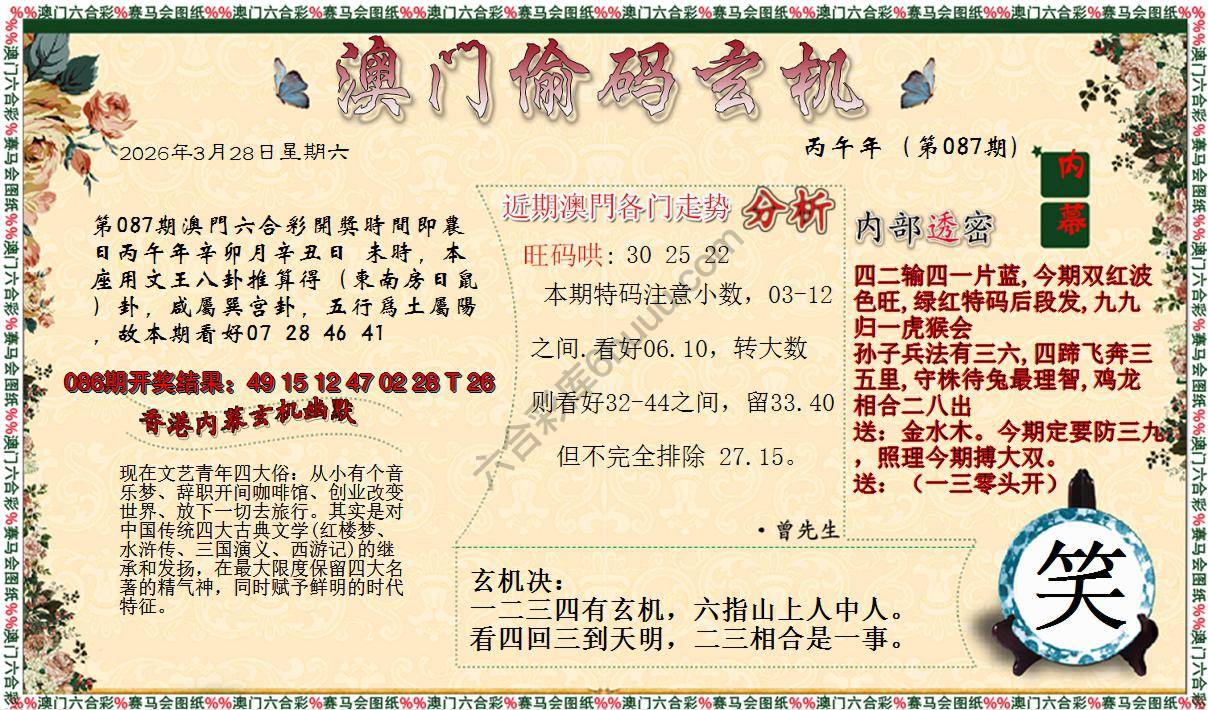 %%澳门六合彩%赛马会图纸%%澳门六合彩%赛马会图纸%%澳门六合彩%赛马会图纸%%澳门六合彩%赛马会图纸%%澳门六合彩%赛马会图纸%%澳门六合彩%赛马会图纸%%
澳门偷码玄机
2026年3月28日星期六
丙午年（第087期）
内幕
第087期澳門六合彩開獎時間即農
日丙午年辛卯月辛丑日 未時，本
座用文王八卦推算得（東南房日鼠
）卦，咸屬巽宫卦，五行爲土屬陽
，故本期看好07 28 46 41
086期开奖结果：49 15 12 47 02 28 T 26
香港内幕玄机幽默
现在文艺青年四大俗：从小有个音
乐梦、辞职开间咖啡馆、创业改变
世界、放下一切去旅行。其实是对
中国传统四大古典文学(红楼梦、
水浒传、三国演义、西游记)的继
承和发扬，在最大限度保留四大名
著的精气神，同时赋予鲜明的时代
特征。
近期澳門各门走势 分析
旺码哄: 30 25 22
本期特码注意小数，03-12
之间.看好06.10，转大数
则看好32-44之间，留33.40
但不完全排除 27.15。
·曾先生
内部透密
四二输四一片蓝,今期双红波
色旺,绿红特码后段发,九九
归一虎猴会
孙子兵法有三六,四蹄飞奔三
五里,守株待兔最理智,鸡龙
相合二八出
送：金水木。今期定要防三九
，照理今期搏大双。
送：（一三零头开）
玄机决：
一二三四有玄机，六指山上人中人。
看四回三到天明，二三相合是一事。
笑